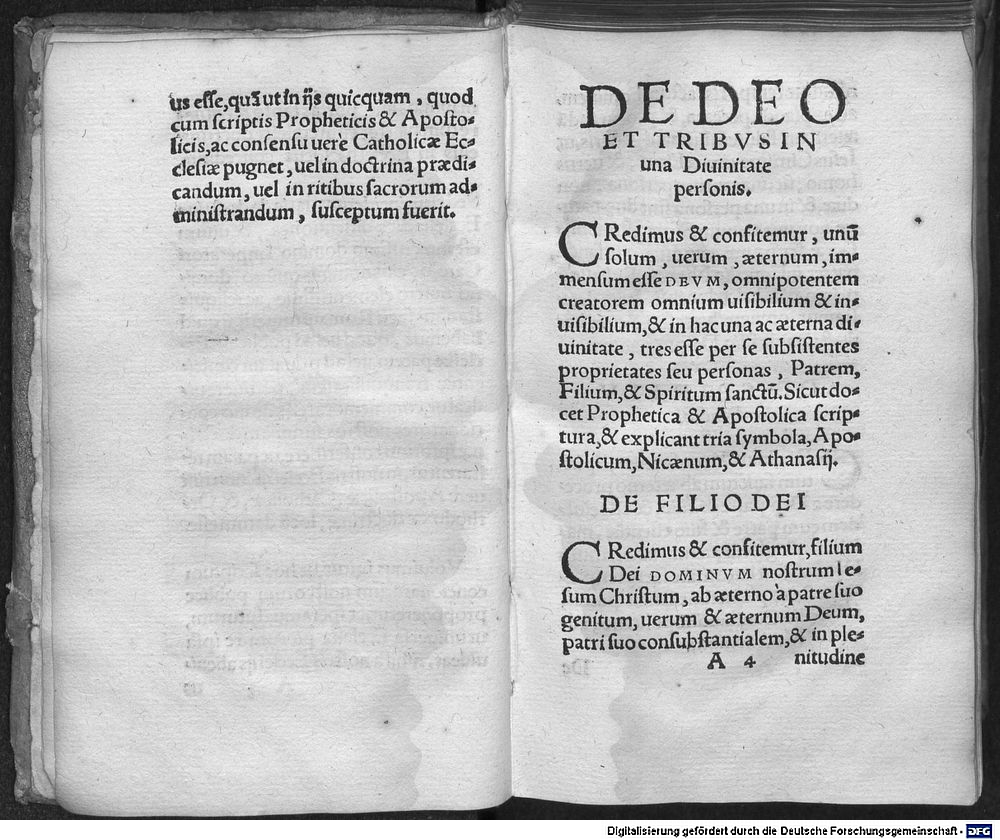 us esse, quā ut in ijs quicquam, quod
cum scriptis Propheticis & Aposto-
licis, ac consensu uerè Catholicæ Ec-
clesiæ pugnet, uel in doctrina prædi-
candum, uel in ritibus sacrorum ad-
ministrandum, susceptum fuerit.
DE DEO
ET TRIBVS IN
una Diuinitate
personis.
CRedimus & confitemur, unū
solum, uerum, æternum, im-
mensum esse DEVM, omnipotentem
creatorem omnium uisibilium & in-
uisibilium, & in hac una ac æterna di-
uinitate, tres esse per se subsistentes
proprietates seu personas, Patrem,
Filium, & Spiritum sanctū. Sicut do-
cet Prophetica & Apostolica scrip-
tura, & explicant tria symbola, Apo-
stolicum, Nicænum, & Athanasij.
DE FILIO DEI
CRedimus & confitemur, filium
Dei DOMINVM nostrum Ie-
sum Christum, ab æterno à patre suo
genitum, uerum & æternum Deum,
patri suo consubstantialem, & in ple-
A 4 nitudine
Digitalisierung gefördert durch die Deutsche Forschungsgemeinschaft - DFG